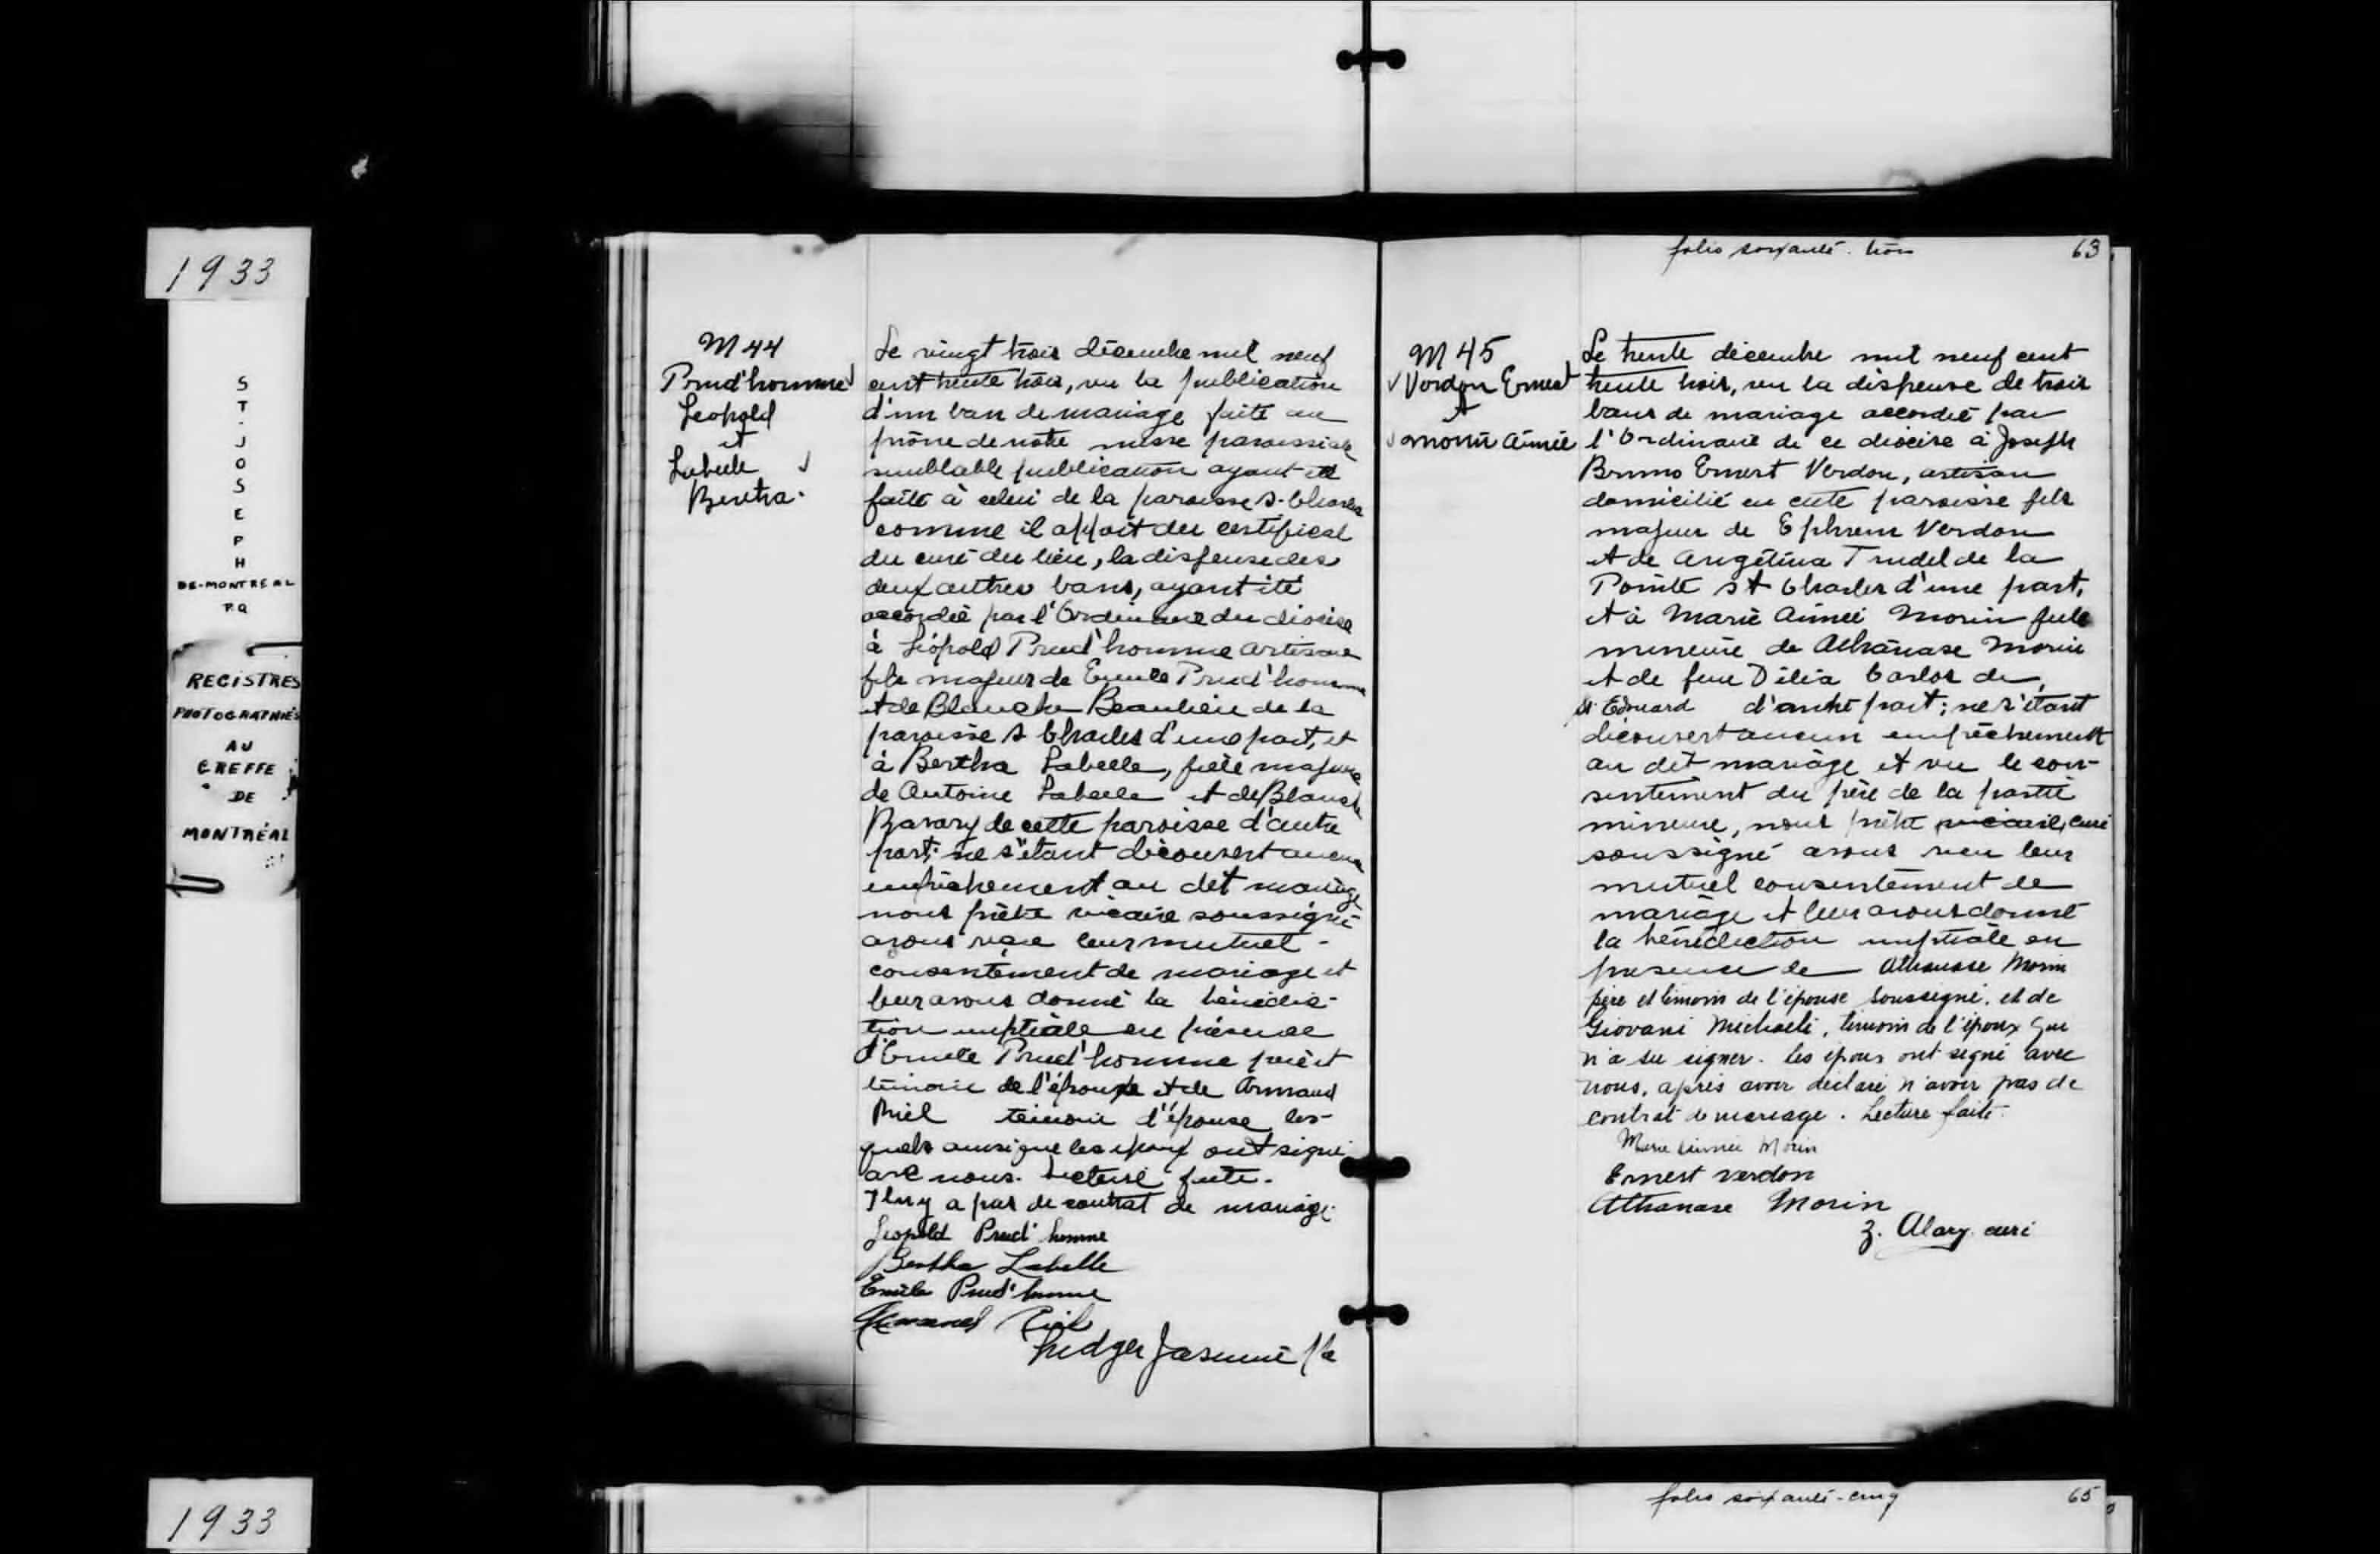 1933
ST. JOSEPH
DE-MONTREAL
P.Q
REGISTRES
PHOTOGRAPHIÉS
AU
GREFFE
DE
MONTRÉAL
1933
M 44
Prud'homme
Leopold
et
Labelle
Bertha.
Le vingt trois décembre mil neuf
cent trente trois, vu la publication
d'un ban de mariage faite au
prône de notre messe paroissiale
semblable publication ayant été
faite à celui de la paroisse S. Charles
comme il appert du certificat
du curé du lieu, la dispense des
deux autres bans, ayant été
accordée par l'Ordinaire du diocèse
à Léopold Prud'homme artisan
fils majeur de Emile Prud'homme
et de Blanche Beaulieu de la
paroisse S Charles d'une part, et
à Bertha Labelle, fille majeure
de Antoine Labelle et de Blanche
Bavary de cette paroisse d'autre
part; ne s'étant découvert aucun
empêchement au dit mariage
nous prêtre vicaire soussigné
avons reçu leur mutuel
consentement de mariage et
leur avons donné la bénédic-
tion nuptiale en présence
d'Emile Prud'homme père et
témoin de l'époux et de Armand
Riel témoin d'épouse les-
quels ainsi que les époux ont signé
avec nous. Lecture faite.
Il n'y a pas de contrat de mariage.
Leopold Prud'homme
Bertha Labelle
Emile Prud'homme
Armand Riel
Ludger Jasmin ptre
folio soixante-trois 63
M 45
Verdon Ernest
et
Morin Aimée
Le trente décembre mil neuf cent
trente trois, vu la dispense de trois
bans de mariage accordée par
l'Ordinaire de ce diocèse à Joseph
Bruno Ernest Verdon, artisan
domicilié en cette paroisse fils
majeur de Ephrem Verdon
et de Angélina Trudel de la
Pointe St Charles d'une part,
et à Marie Aimée Morin fille
mineure de Athanase Morin
et de feue Délia Carlos de
St Edouard d'autre part; ne s'étant
découvert aucun empêchement
au dit mariage et vu le con-
sentement du père de la partie
mineure, nous prêtre vicaire, curé
soussigné avons reçu leur
mutuel consentement de
mariage et leur avons donné
la bénédiction nuptiale en
présence de Athanase Morin
père et témoin de l'épouse soussigné, et de
Giovani Michaeli, témoin de l'époux qui
n'a su signer. Les époux ont signé avec
nous, après avoir déclaré n'avoir pas de
contrat de mariage. Lecture faite.
Marie Aimée Morin
Ernest Verdon
Athanase Morin
Z. Alary curé
folio soixante-cinq 65